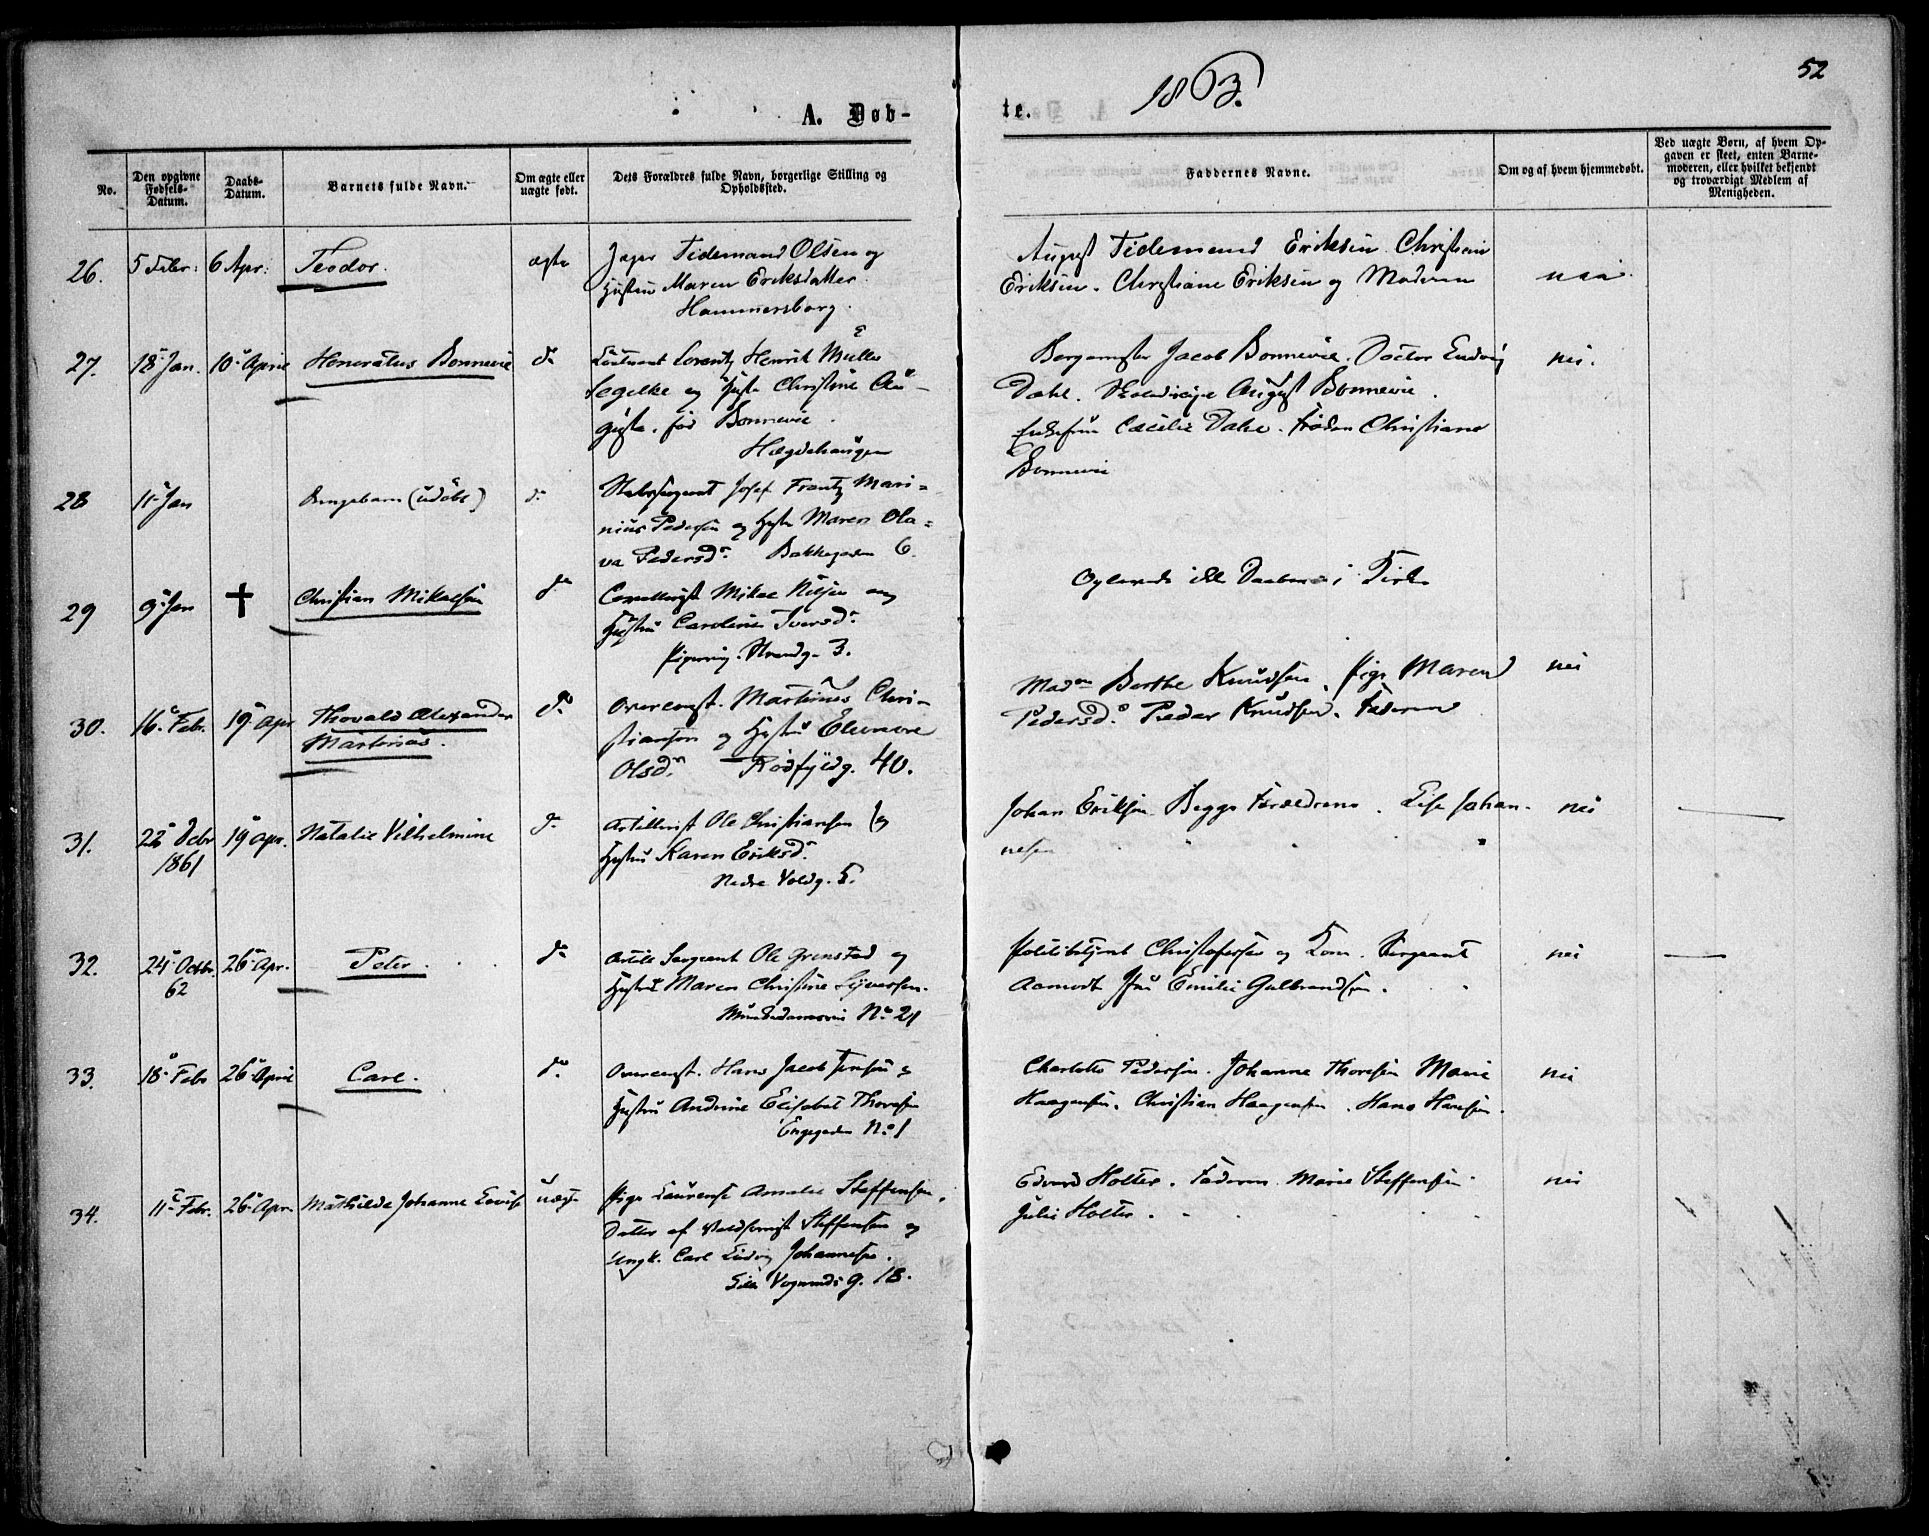 52
1863.
A. Døb-
te.
No.
Den opgivne Fødsels-Datum.
Daabs-Datum.
Barnets fulde Navn.
Om ægte eller uægte født.
Dets Forældres fulde Navn, borgerlige Stilling og Opholdssted.
Faddernes Navne.
Om og af hvem hjemmedøbt.
Ved uægte Børn, af hvem Opgaven er skeet, enten Barnemoderen, eller hvilket bekjendt og troværdigt Medlem af Menigheden.
26. 5 Febr: 6 Apr: Teodor. ægte
Jæger Tidemand Olsen og
Hustru Maren Eriksdatter
Hammersborg.
August Tidemand Eriksen Christian
Eriksen. Christiane Eriksen og Moderen
nei
27. 18 Jan. 10 April Honoratus Bonnevie do
Lorentz Henrik Müller
Segelke og Christine Au-
gusta, fød Bonnevie.
Hægdehaugen
Jacob Bonnevie. Doctor Ludvig
Dahl. August Bonnevie.
Cæcilie Dahl. Frøken Christiane
Bonnevie
nei.
28 11 Jan Drengebarn (udøbt) do
Josef Frantz Mari-
nius Pedersen og Maren Ola-
va Pedersd. Bakkegaden 6.
29 9 Jan ✝ Christian Mikalsen do
Mikal Nilsen og
Hustru Caroline Iversd.
Pipervig. Strandg. 3.
i Kirken
30. 16 Febr. 19 Apr Thovald Alexander
Martinus. do
Overconst. Martinus Chri-
stiansen og Hustru Eleonore
Olsd. Rødfyldg. 40.
Mad. Berthe Knudsen, Pige Maren
Pedersd. Peder Knudsen. Faderen
nei
31. 22 Debr
1861 19 Apr. Natalie Vilhelmine do
Artillerist Ole Christiansen og
Hustru Karen Eriksd.
Nedre Voldg. 5.
Johan Eriksen Begge Forældrene. Lise Johan-
nesen
nei
32. 24 Octbr.
62 26 Apr. Peter. do
Artill Sergeant Ole Grinstad og
Hustru Maren Christine Sjversen.
No. 21
Politibetjent Christofersen og Kom. Sergeant
Aamodt Emilie Gulbrandsen.
nei
33. 18 Febr 26 April Carl. do
Overconst. Hans Jacob Jensen og
Hustru Andrine Elisabet Thoresen
Engegaden No. 1
Charlotte Pedersen. Johanne Thoresen Marie
Haagensen. Christian Haagensen. Hans Hansen.
nei
34. 11 Febr. 26 Apr. Mathilde Johanne Lovise uægte
Pige Laurense Amalie Steffensen,
Datter af Steffensen og
Ungk. Carl Ludvig Johannesen.
Lille Vognmandsg. 18.
Edvard Holter. Faderen. Marie Steffensen
Julie Holter.
nei